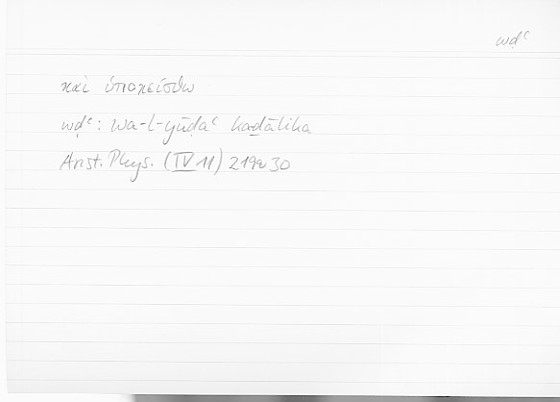 wḍʿ
καὶ ὑποκείσθω
wḍʿ: wa-l-yūḍaʿ kaḏālika
Arist. Phys. (IV 11) 219a30